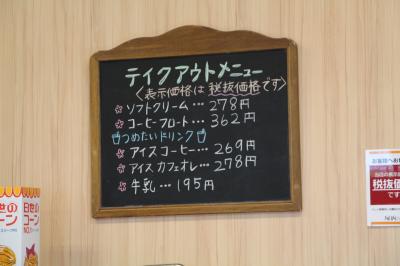 テイクアウトメニュー
〈表示価格は税抜価格です〉
ソフトクリーム…278円
コーヒーフロート…362円
つめたいドリンク
アイスコーヒー…269円
アイスカフェオレ…278円
牛乳…195円
お客様へお
税抜価
です
日世の
コーン